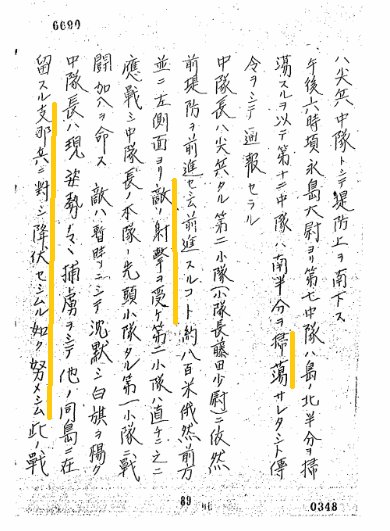 6690
ハ尖兵中隊トシテ堤防上ヲ南下ス
午後六時頃永島大尉ヨリ第七中隊ハ島ノ北半分ヲ掃
蕩スルヲ以テ第十二中隊ハ南半分ヲ掃蕩サレタシト傳
令ヲシテ通報セラル
中隊長ハ尖兵タル第二小隊小隊長藤田少尉ニ依然
前堤防ヲ前進セシ前進スルコト約八百米俄然前方
並ニ左側面ヨリ敵ノ射撃ヲ受ケ第二小隊ハ直チニ之ニ
應戦シ中隊長ノ本隊ノ先頭小隊タル第一小隊ニ戦
闘加入ヲ命ス 敵ハ暫時ニシテ沈黙シ白旗ヲ掲ク
中隊長ハ現姿勢ノママ捕虜ヲシテ他ノ同島ニ在
留スル支那兵ニ對シ降伏セシムル如ク努メシム此ノ戦
89
0348